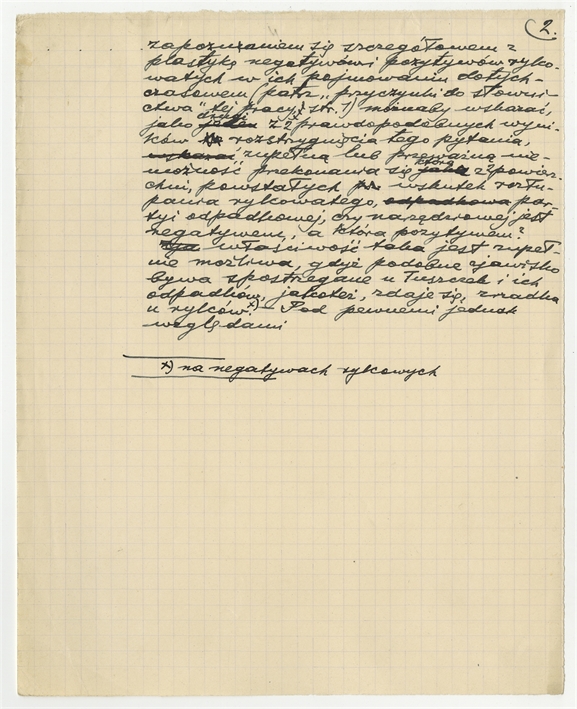 2.
zapoznaniem się szczegółowem z
plastyką negatywów i pozytywów rylco-
watych w ich pojmowaniu dotych-
czasowem (patrz „przyczynki do słowni-
ctwa" tej pracy, str. 1) możnaby wskazać,
jako drugi z 2x prawdopodobnych wyni-
ków rozstrzygnięcia tego pytania,
wskazać, zupełną lub przeważną nie-
możność przekonania się, która z powierz-
chni, powstałych wskutek rozłu-
pania rylcowatego, odpadkowa par-
tyi odpadkowej, czy narzędziowej jest
negatywem, a która pozytywem?
właściwość taka jest zupeł-
nie możliwa, gdyż podobne zjawisko
bywa spostrzegane u łuszczek i ich
odpadków, jakoteż, zdaje się, zrzadka
u rylców. x) Pod pewnemi jednak
względami
x) na negatywach rylcowych